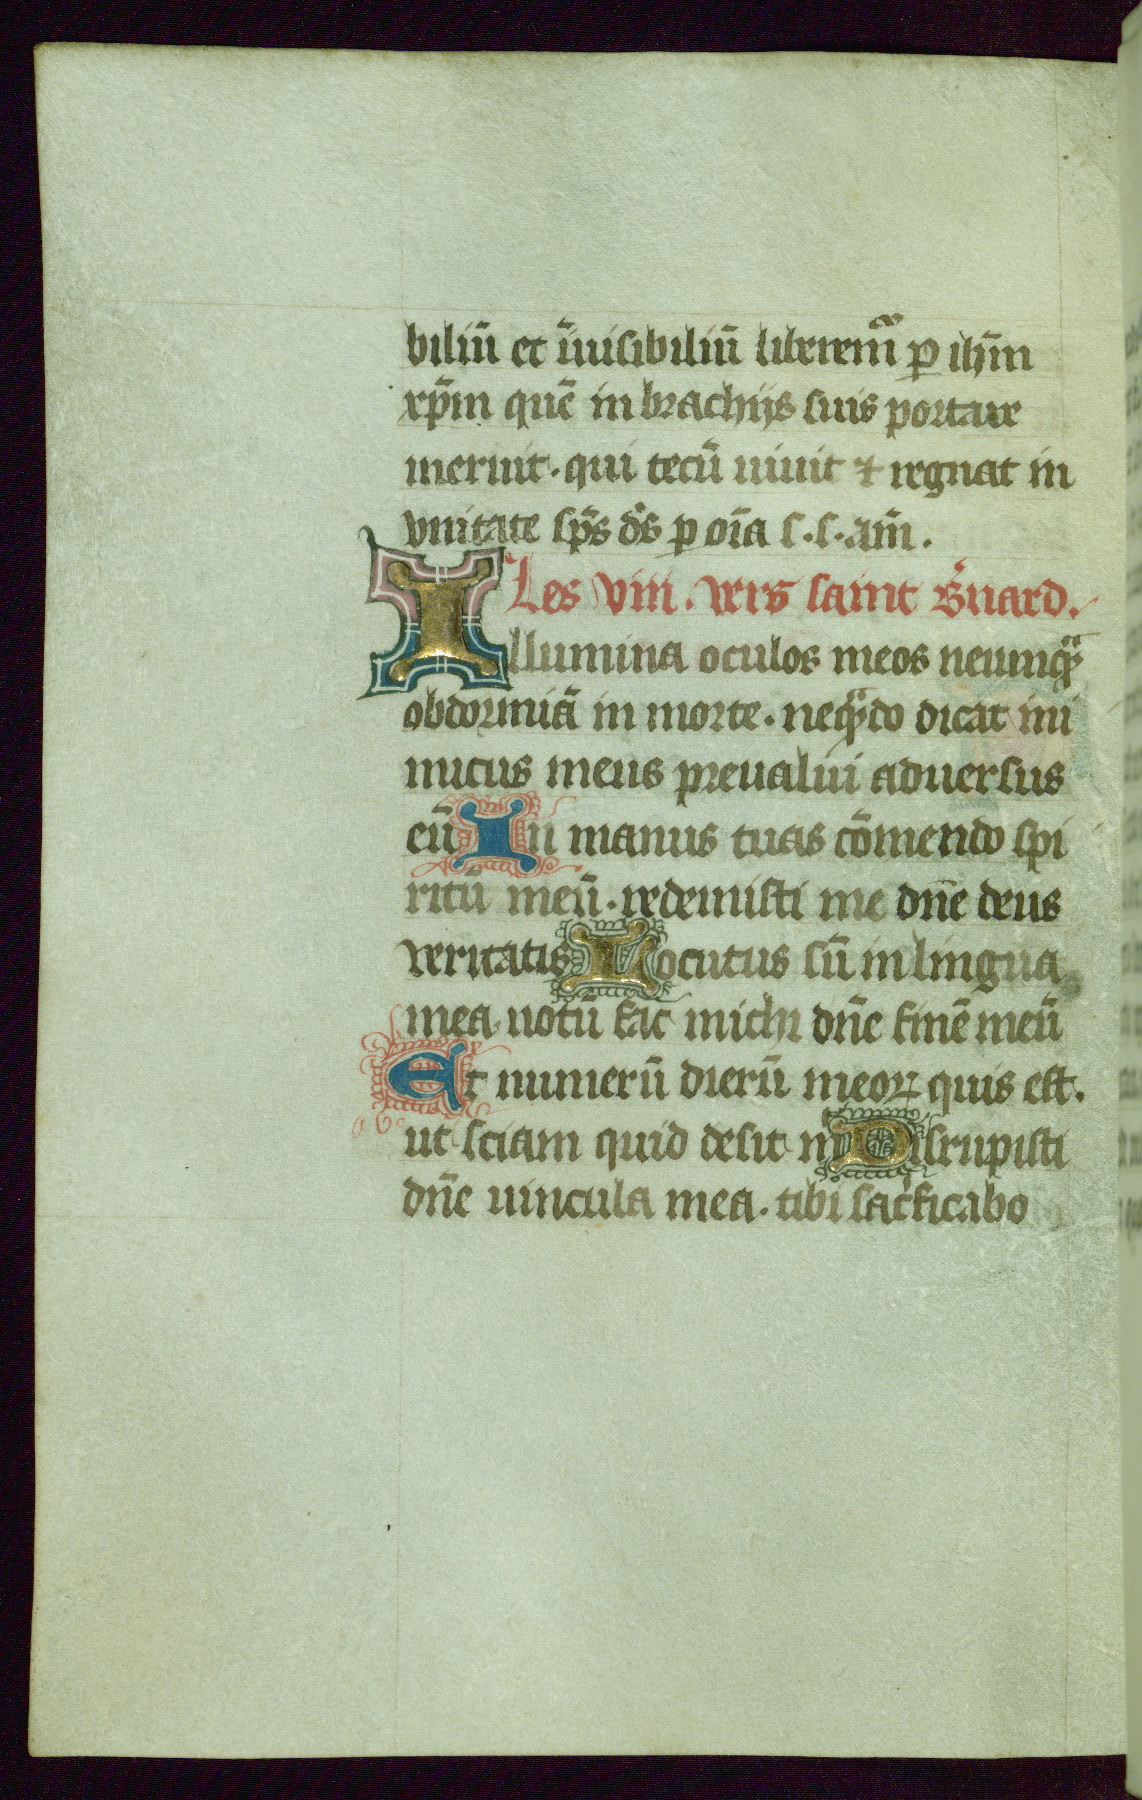 biliū et īuisibiliū liberem᷑ ꝑ ihm̄
xp̄m quē in brachijs suis portare
meruit · qui tecū uiuit ⁊ regnat in
vnitate sp̄s d̄s ꝑ oīa s · s · am̄ .
Les viii . vers saint b̄nard .
Illumina oculos meos ne unqᷓ
obdormiā in morte · neqᷓdo dicat ini
micus meus preualui aduersus
eū In manus tuas cōmendo spi
ritū meū · redemisti me dn̄e deus
veritatis Locutus sū in lingua
mea · notū fac michi dn̄e finē meū
Et numerū dierū meoꝝ quis est .
ut sciam quid desit m̄ Disrupisti
dn̄e uincula mea · tibi sac̍ficabo